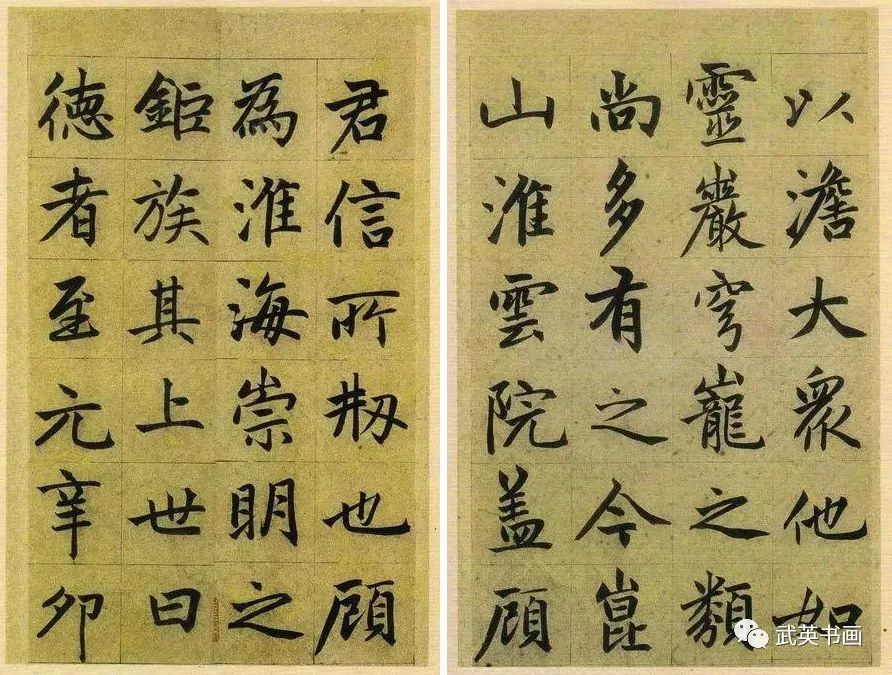 以澹大衆他如
靈巖穹巃之類
尚多有之今崑
山淮雲院盖顧
君信所刱也顧
為淮海崇明之
鉅族其上世曰
徳者至元辛卯
武英书画